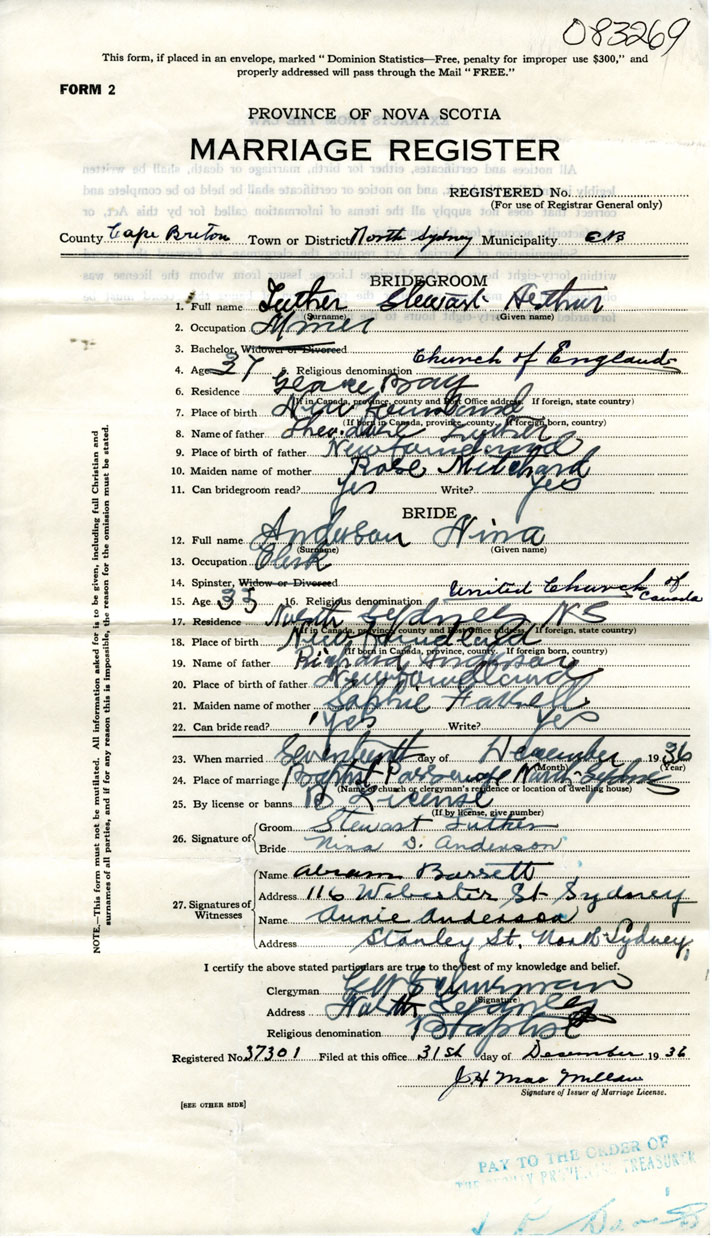 083269
This form, if placed in an envelope, marked " Dominion Statistics—Free, penalty for improper use $300," and
properly addressed will pass through the Mail "FREE."
FORM 2
PROVINCE OF NOVA SCOTIA
MARRIAGE REGISTER
REGISTERED No.
(For use of Registrar General only)
County Cape Breton Town or District North Sydney Municipality CB
BRIDEGROOM
1. Full name Luther Stewart Arthur
(Surname) (Given name)
2. Occupation Miner
3. Bachelor, Widower or Divorced
4. Age 37 5. Religious denomination Church of England
6. Residence Glace Bay
(If in Canada, province, county and Post Office address. If foreign, state country)
7. Place of birth Newfoundland
(If born in Canada, province, county. If foreign born, country)
8. Name of father Theodore Luther
9. Place of father Newfoundland
10. Maiden name of mother Rose Mitchard
11. Can bridegroom read? Yes Write? Yes
BRIDE
12. Full name Anderson Nina
(Surname) (Given name)
13. Occupation Clerk
14. Spinster, Widow or Divorced
15. Age 35 16. Religious denomination United Church of Canada
17. Residence North Sydney NS
(If in Canada, province, county and Post Office address. If foreign, state country)
18. Place of birth Newfoundland
(If born in Canada, province, county. If foreign born, country)
19. Name of father Richard Anderson
20. Place of birth of father Newfoundland
21. Maiden name of mother Sophie
22. Can bride read? Yes Write? Yes
23. When married Seventeenth day of December 1936
(Month) (Year)
24. Place of marriage Baptist Parsonage North Sydney
(Name of church or clergyman's residence or location of dwelling house)
25. By license or banns License
(If by license, give number)
26. Signature of
Groom Stewart Luther
Bride Nina D. Anderson
27. Signatures of Witnesses
Name Abram Barrett
Address 116 Webster St Sydney
Name Annie Anderson
Address Stanley St. North Sydney,
I certify the above stated particulars are true to the best of my knowledge and belief.
Clergyman
(Signature)
Address North Sydney
Religious denomination Baptist
Registered No. 37301 Filed at this office 31st day of December 1936
J H MacMillan
Signature of Issuer of Marriage License.
[SEE OTHER SIDE]
NOTE.—This form must not be mutilated. All information asked for is to be given, including full Christian and
surnames of all parties, and if for any reason this is impossible, the reason for the omission must be stated.
PAY TO THE ORDER OF
THE DEPUTY PROVINCIAL TREASURER